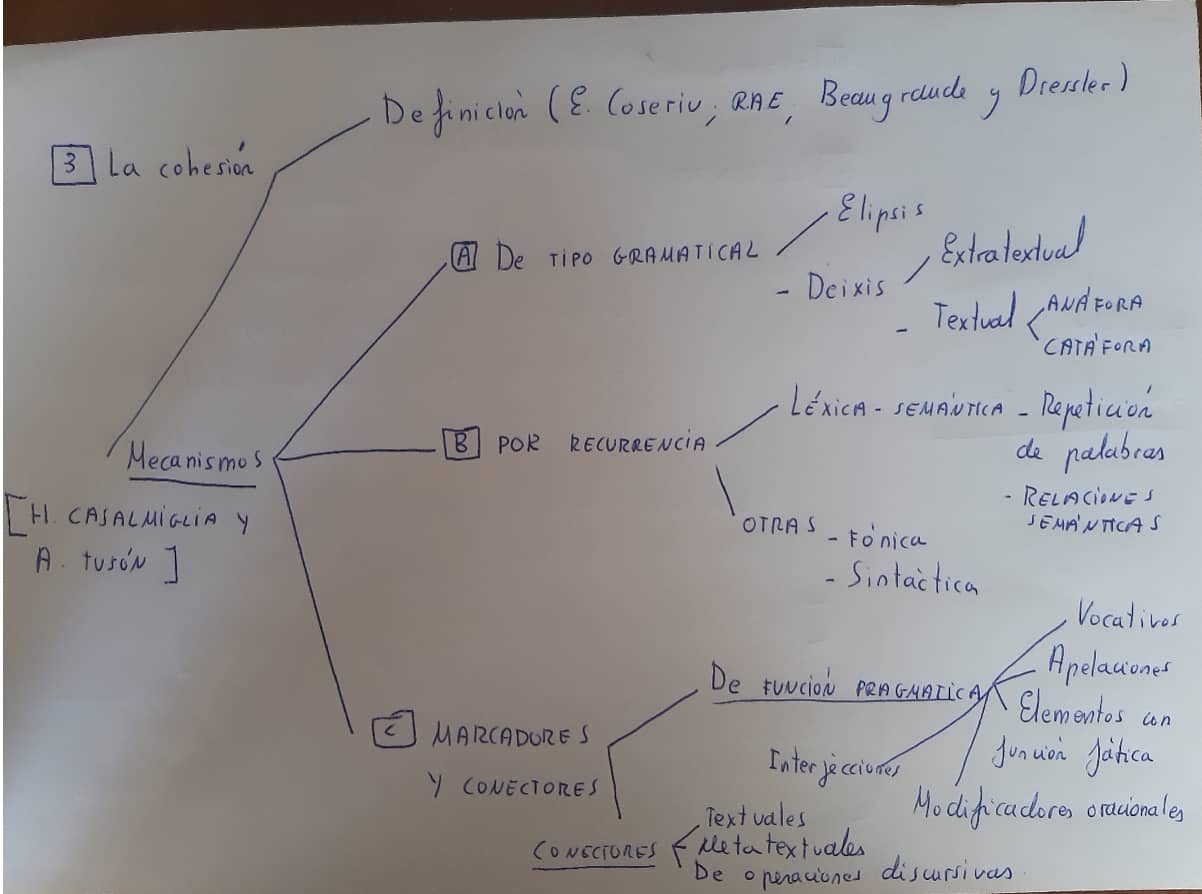 Definición (E. Coseriu, RAE, Beaugrande y Dressler)
3 La cohesión
Elipsis
A De TIPO GRAMATICAL
Extratextual
- Deixis
- Textual
ANÁFORA
CATÁFORA
LÉXICA - SEMÁNTICA - Repetición
de palabras
- RELACIONES
SEMÁNTICAS
B POR RECURRENCIA
Mecanismos
[H. CASALMIGLIA Y
A. TUSÓN]
OTRAS - FÓNICA
- Sintáctica
Vocativos
Apelaciones
De FUNCIÓN PRAGMATICA
Elementos con
función fática
C MARCADORES
Y CONECTORES
Interjecciones
Modificadores oracionales
Textuales
CONECTORES
Metatextuales
De operaciones discursivas.